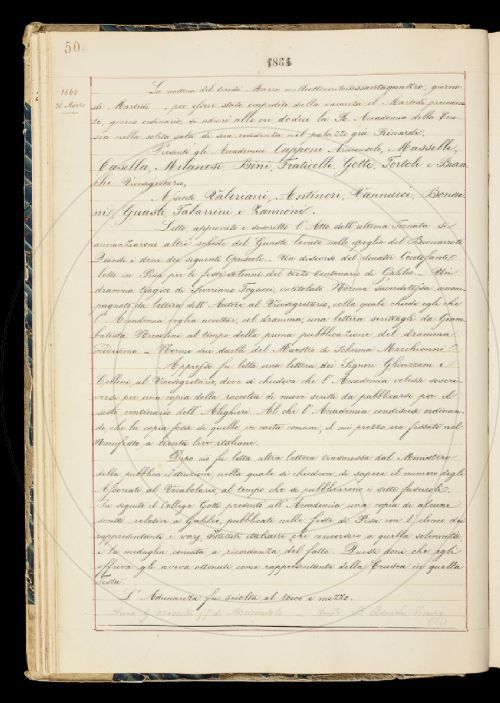 50.
1864
1864
30 Marzo
La mattina del trenta Marzo milleottocentosessantaquattro, giorno
di Martedì per esser stato impedito dalla vacanza il Martedì preceden
te, giorno ordinario, si adunò alle ore dodici la R. Accademia della Cru
sca nella solita sala di sua residenza nel palazzo già Rinardi.
Presenti gli Accademici Capponi Arciconsolo, Masselli,
Casella, Milanesi, Bini, Fraticelli, Gotti, Tortoli e Bian
chi Vicesegretario,
Assenti Valeriani, Antinori, Vannucci, Bonai
ni, Guasti, Tabarrini e Zannoni.
Letto approvato e sottoscritto l'Atto dell'ultima Tornata si
esaminarono altre schede del Guasti levate nello spoglio del Buonarroti
Quindi i doni dei seguenti Opuscoli. Un discorso del Senator Centofanti
letto in Pisa per le feste solenni del terzo Centenario di Galileo. Un
dramma tragico di intitolato Norma sacerdotessa accom
pagnato da lettera dell'Autore al Vicesegretario, nella quale chiede egli che
l'Accademia voglia accettar, col dramma, una lettera scrittagli da Giam
batista Niccolini al tempo della prima pubblicazione del dramma
medesimo.
Appresso fu letta una lettera dei Signori Ghivizzani e
Cellini al Vicesegretario, dove si chiedeva che l'Accademia volesse soscri
versi per una copia della raccolta di nuovi scritti da pubblicarsi per il
sesto centenario dell'Alighieri. Al che l'Accademia condiscese ordinan
do che la copia fosse di quelle in carta comune, il cui prezzo era fissato nel
Manifesto a trenta lire italiane.
Dopo ciò fu letta altra lettera trasmessa dal Ministero
della pubblica Istruzione, nella quale si chiedeva di sapere il numero degli
Associati al Vocabolario, al tempo che si pubblicarono i sette fascicoli.
In seguito il Collega Gotti presentò all'Accademia una copia di alcuni
scritti relativi a Galileo, pubblicati nelle feste di Pisa con l'elenco dei
rappresentanti i varj Istituti italiani che concorsero a quella solennità
e la medaglia coniata a ricordanza del fatto. Questi doni che egli
offriva gli aveva ottenuti come rappresentante della Crusca in quella
festa.
L'Adunanza fu sciolta al tocco e mezzo.